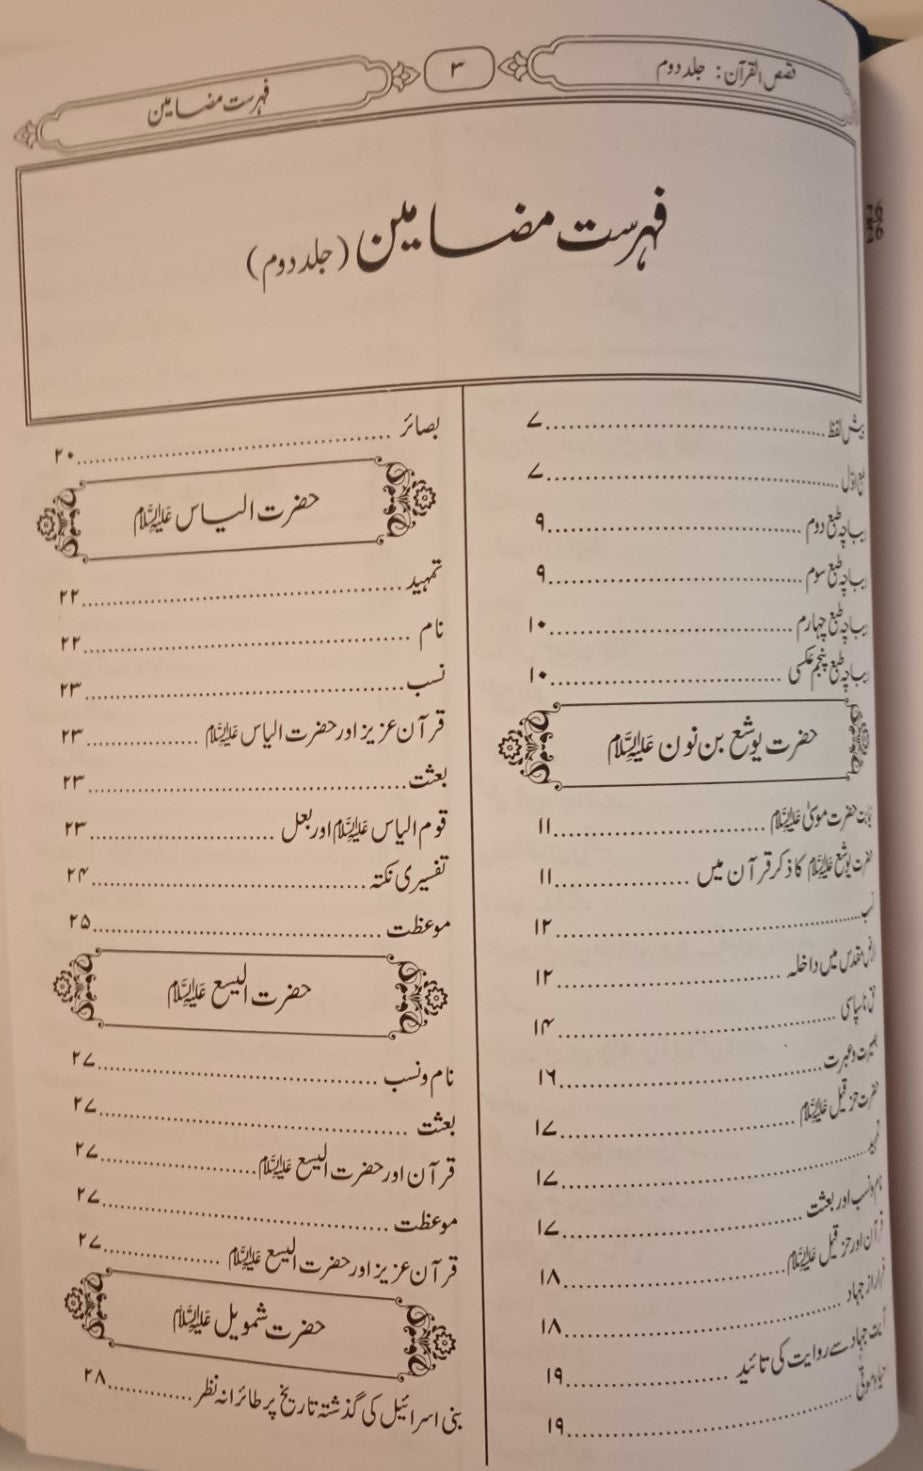 قصص القرآن: جلد دوم
۳
فہرست مضامین
فہرست مضامین (جلد دوم)
پیش لفظ ........ ۷
طبع اوّل ........ ۷
یباچہ طبع دوم ........ ۹
یباچہ طبع سوم ........ ۹
یباچہ طبع چہارم ........ ۱۰
یباچہ طبع پنجم عکسی ........ ۱۰
حضرت یوشع بن نون علیہ السلام
نیابت حضرت موسیٰ علیہ السلام ........ ۱۱
حضرت یوشع علیہ السلام کا ذکر قرآن میں ........ ۱۱
نسب ........ ۱۲
ارض مقدس میں داخلہ ........ ۱۲
حق ناسپاسی ........ ۱۴
بصیرت و عبرت ........ ۱۶
حضرت حزقیل علیہ السلام ........ ۱۷
تمہید ........ ۱۷
نام و نسب اور بعثت ........ ۱۷
قرآن اور حزقیل علیہ السلام ........ ۱۸
فرار از جہاد ........ ۱۸
آیت جہاد سے روایت کی تائید ........ ۱۹
احیاء موتٰی ........ ۱۹
بصائر ........ ۲۰
حضرت الیاس علیہ السلام
تمہید ........ ۲۲
نام ........ ۲۲
نسب ........ ۲۳
قرآن عزیز اور حضرت الیاس علیہ السلام ........ ۲۳
بعثت ........ ۲۳
قوم الیاس علیہ السلام اور بعل ........ ۲۳
تفسیری نکتہ ........ ۲۴
موعظت ........ ۲۵
حضرت الیسع علیہ السلام
نام و نسب ........ ۲۷
بعثت ........ ۲۷
قرآن اور حضرت الیسع علیہ السلام ........ ۲۷
موعظت ........ ۲۷
قرآن عزیز اور حضرت الیسع علیہ السلام ........ ۲۷
حضرت شمویل علیہ السلام
بنی اسرائیل کی گذشتہ تاریخ پر طائرانہ نظر ........ ۲۸